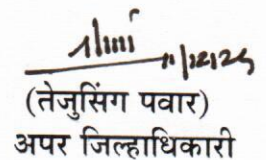 11/12/25
(तेजुसिंग पवार)
अपर जिल्हाधिकारी